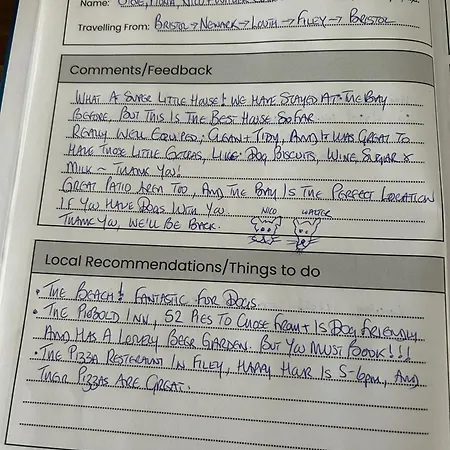 Name: STEVE, FIONA, NICO +
Travelling From: BRISTOL → NEWARK → LOUTH → FILEY → BRISTOL
Comments/Feedback
WHAT A SUPER LITTLE HOUSE! WE HAVE STAYED AT THE BAY
BEFORE, BUT THIS IS THE BEST HOUSE SO FAR.
REALLY WELL EQUIPED, CLEAN + TIDY, AND IT WAS GREAT TO
HAVE THOSE LITTLE EXTRAS, LIKE DOG BISCUITS, WINE, SUGAR &
MILK ~ THANK YOU!
GREAT PATIO AREA TOO, AND THE BAY IS THE PERFECT LOCATION
IF YOU HAVE DOGS WITH YOU.
NICO WALTER
THANK YOU, WE'LL BE BACK.
Local Recommendations/Things to do
• THE BEACH! FANTASTIC FOR DOGS.
• THE PIEBALD INN, 52 PIES TO CHOSE FROM + IS DOG FRIENDLY
AND HAS A LOVELY BEER GARDEN. BUT YOU MUST BOOK!!!
• THE PIZZA RESTERAUNT IN FILEY, HAPPY HOUR IS 5-6pm, AND
THEIR PIZZAS ARE GREAT.